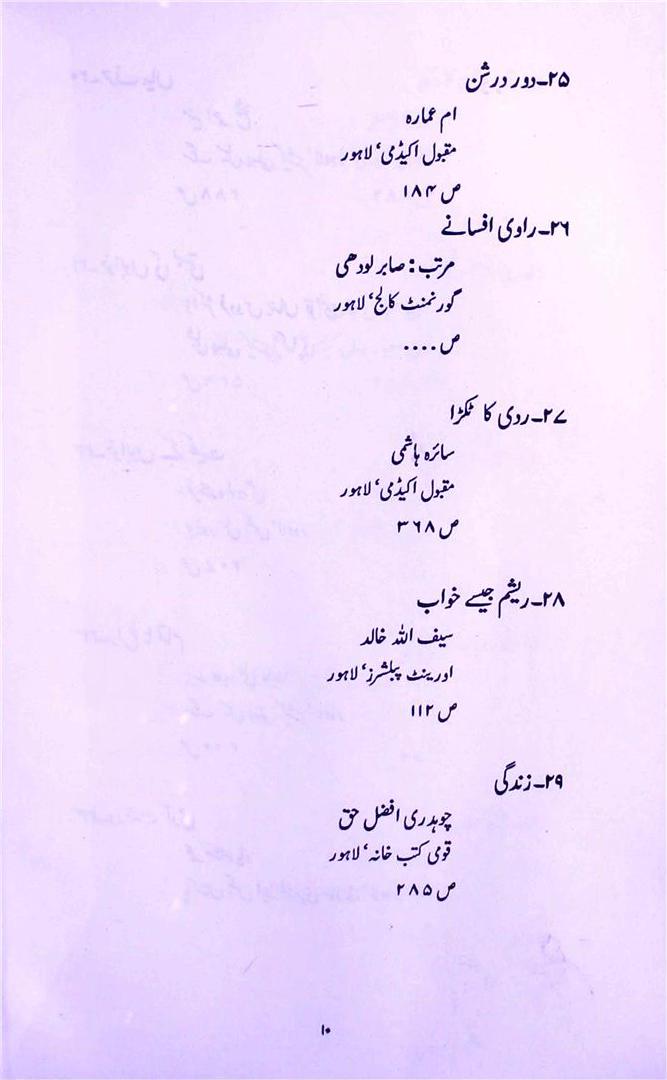 ۲۵۔ دور درشن
ام عمارہ
مقبول اکیڈمی، لاہور
ص ۱۸۴
۲۶۔ راوی افسانے
مرتب : صابر لودھی
گورنمنٹ کالج، لاہور
ص ....
۲۷۔ ردی کا ٹکڑا
سائرہ ہاشمی
مقبول اکیڈمی، لاہور
ص ۳۶۸
۲۸۔ ریشم جیسے خواب
سیف اللہ خالد
اورینٹ پبلشرز، لاہور
ص ۱۱۲
۲۹۔ زندگی
چوہدری افضل حق
قومی کتب خانہ، لاہور
ص ۲۸۵
۱۰